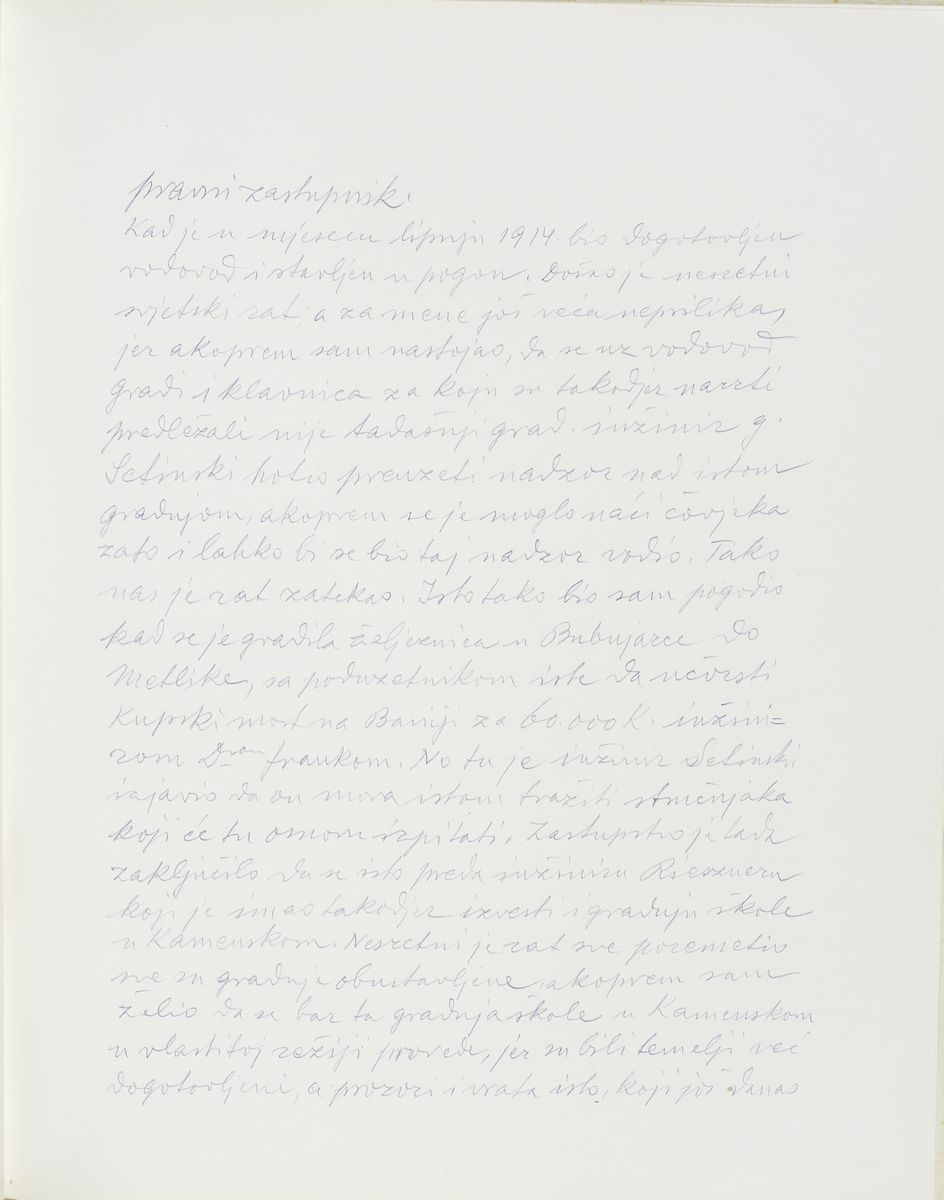 pravni zastupnik.
Kad je u mjesecu lipnju 1914. bio dogotovljen
vodovod i stavljen u pogon. Došao je nesretni
svjetski rat, a za mene još veća neprilika,
jer akoprem sam nastojao, da se uz vodovod
gradi i klavnica za koju su takodjer nacrti
predležali nije tadašnji grad. inžinir g.
Setinski hotio preuzeti nadzor nad istom
gradnjom, akoprem se je moglo naći čovjeka
zato i lahko bi se bio taj nadzor vodio. Tako
nas je rat zatekao. Isto tako bio sam pogodio
kad se je gradila željeznica u Bubnjarce do
Metlike, sa poduzetnikom iste da učvrsti
Kupski most na Baniji za 60.000 K. inžini=
rom Drom frankom. No tu je inžinir Setinski
izjavio da on mora istom tražiti stručnjaka
koji će tu osnovu izpitati. Zastupstvo je tada
zaključilo da se isto preda inžiniru Rieszneru
koji je imao takodjer izvesti i gradnju škole
u Kamenskom. Nesretni je rat sve poremetio
sve su gradnje obustavljene, akoprem sam
želio da se bar ta gradnja škole u Kamenskom
u vlastitoj režiji provede, jer su bili temelji već
dogotovljeni, a prozori i vrata isto, koji još danas